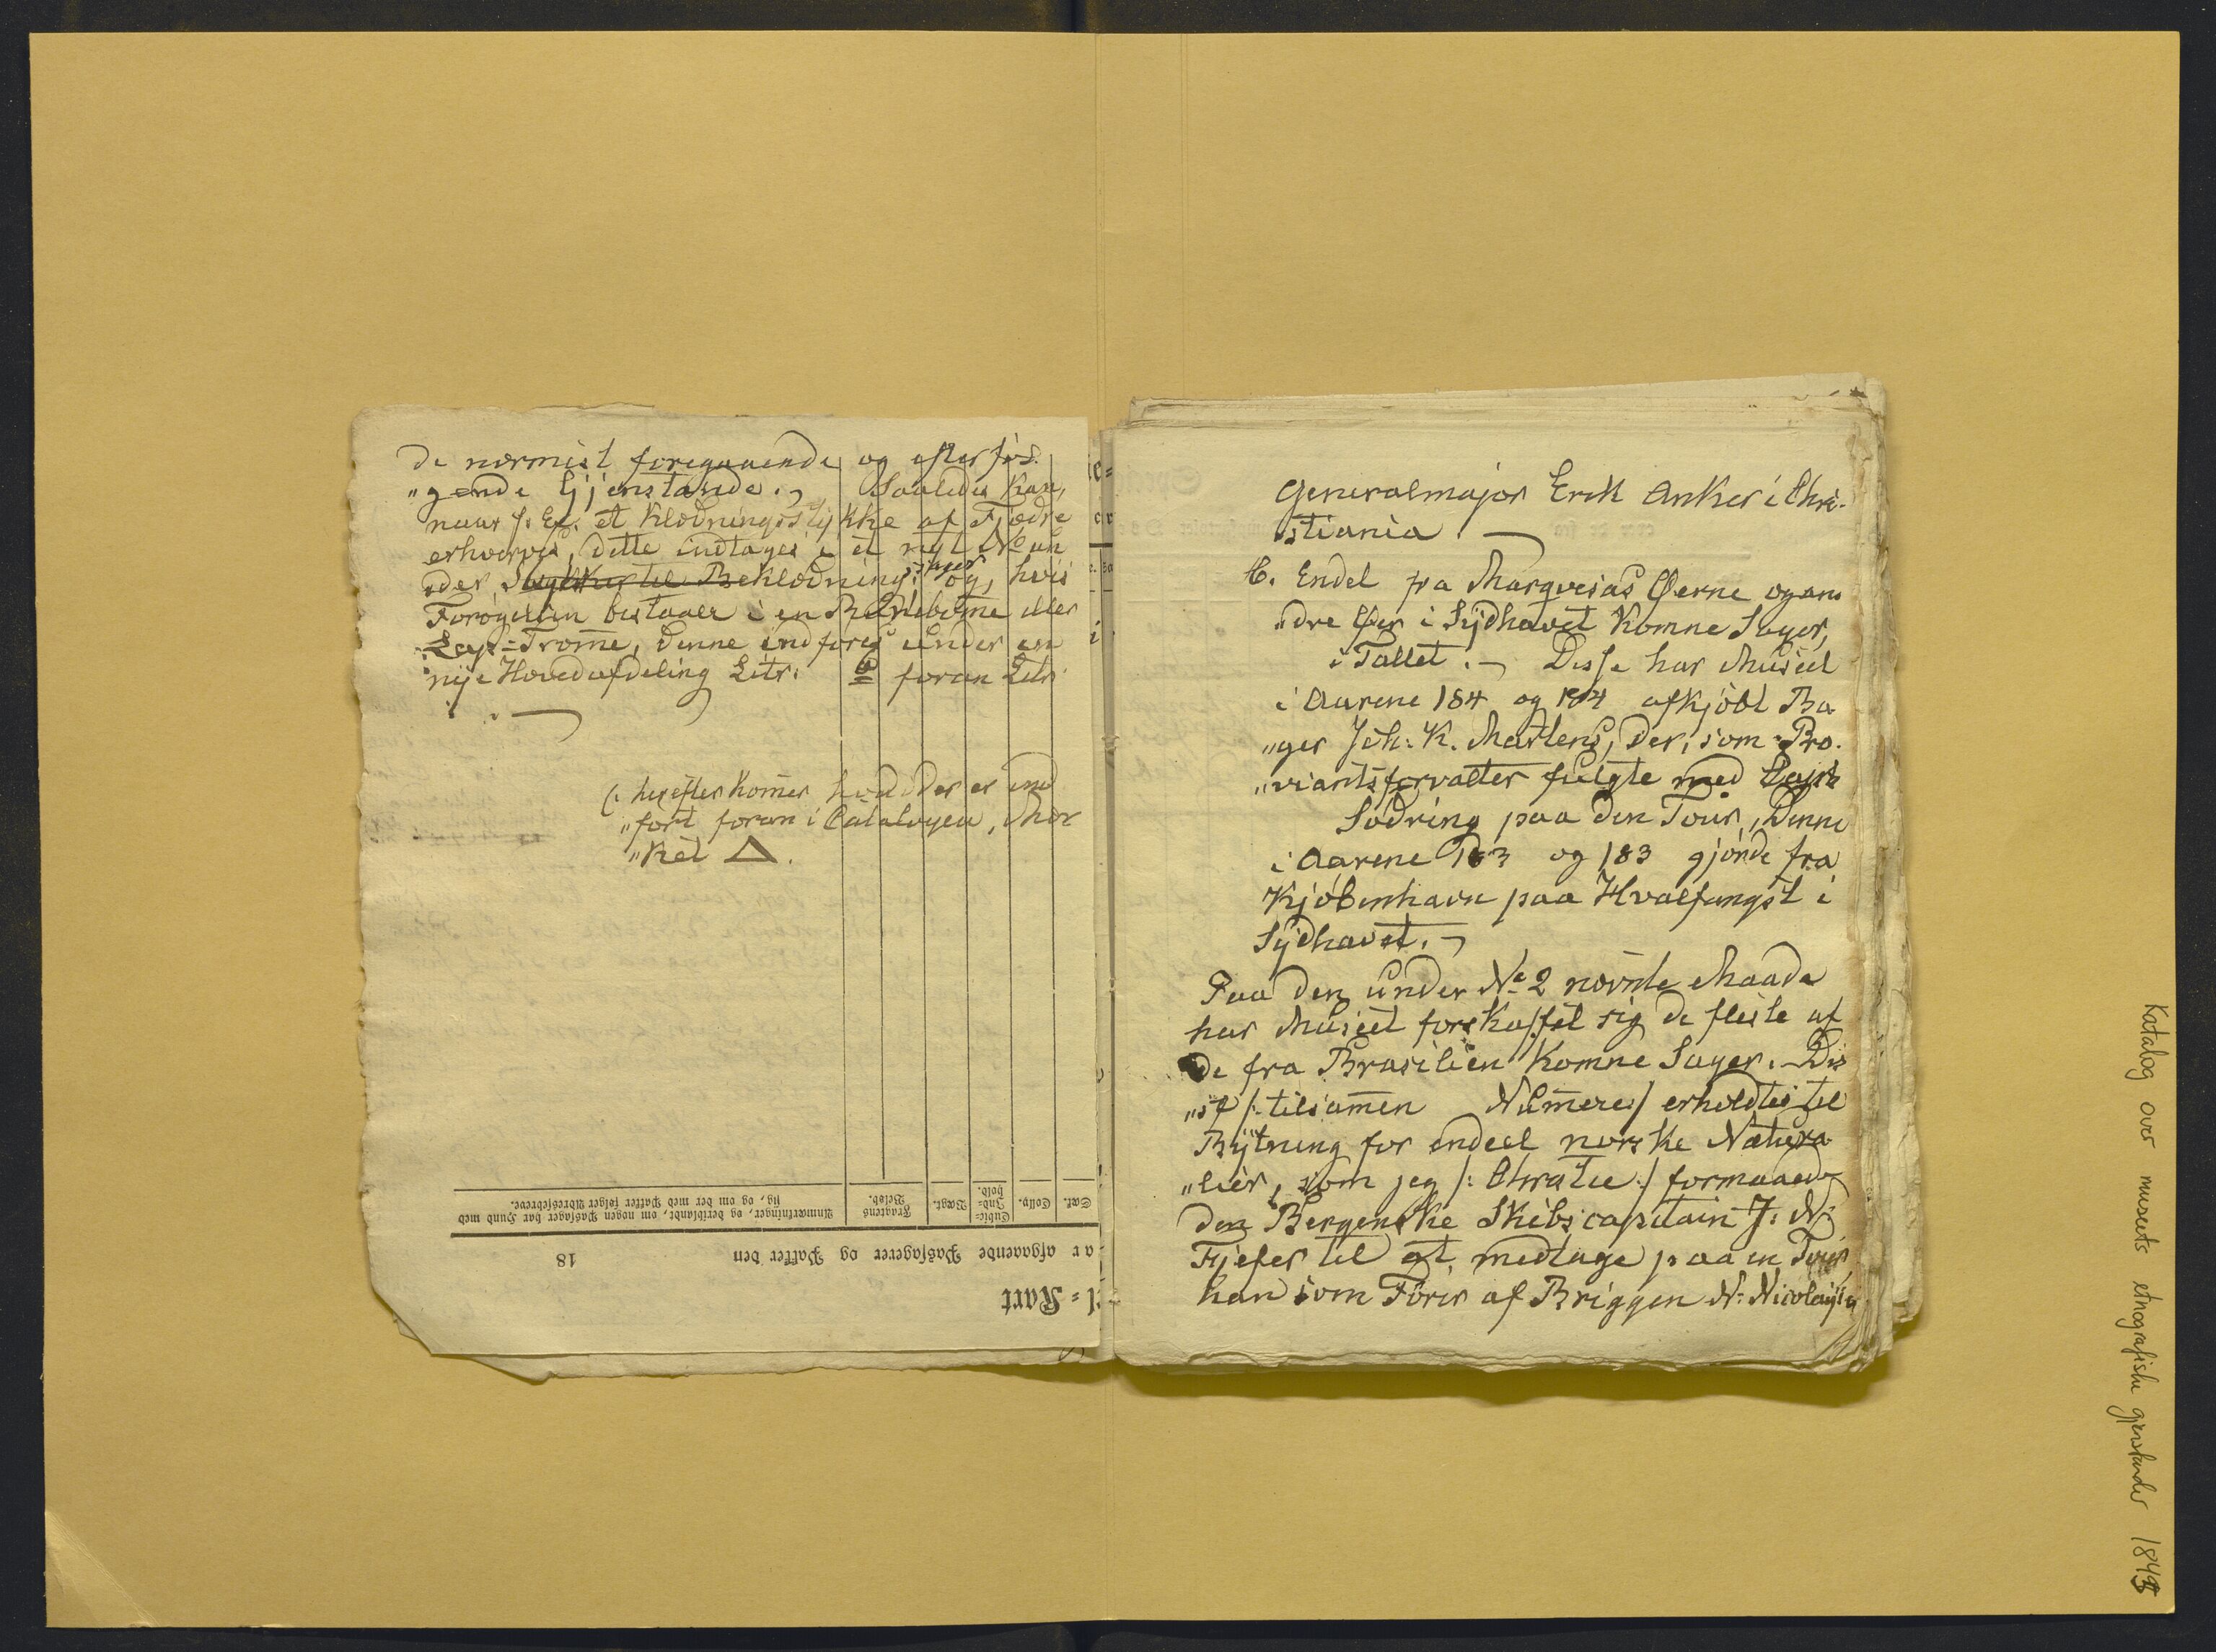 de nærmest foregaaende og efterføl-
„gende Gjenstande. – Saaledes kan,
naar f. Ex. et Klædningsstykke af Fjædre
erhverves, dette indtages i et nyt No un
der Stykker til Beklædning: sager og, hvis
Forøgelsen bestaaer i en Runebomme eller
Lap-Tromme, denne indføres under en
nye Hovedafdeling Litr: foran Litr:
(: herefter kommer hvad der er ind
„ført foran i Catalogen, mær
„ket △.
Cubic-
Ind-
hold.
Sæt.
Colly.
Vægt.
Fragtens
Beløb.
Anmærkninger, og deriblandt, om nogen Passager har Hund med
sig, og om der med Pakker følger Adressebreve.
ar afgaaende Passagerer og Pakker den 18
l=Kart
Generalmajor Erik Anker i Chri-
stiania. –
C. Endel fra Marqvesas Øerne og an
„dre Øer i Sydhavet komne Sager,
i Tallet. – Disse har Museet
i Aarene 184 og 184 afkjøbt Ba
„ger Joh: K. Martens, der, som Pro-
„viantsforvalter fulgte med Capt
Sødring paa den Tour, Denne
i Aarene 183 og 183 gjorde fra
Kjøbenhavn paa Hvalfangst i
Sydhavet. –
Paa den under No 2 nævnte Maade
har Museet forskaffet sig de fleste af
de fra Brasilien komne Sager. – Dis
„se /: tilsammen Numere :/ erholdtes til
Bytning for endeel norske Natura
„lier, som jeg /: Christie :/ formaaede
den Bergenske Skibscapitain J. N.
Fjefer til at medtage paa en Tour,
han som Fører af Briggen N. Nicolaysen
Katalog over museets etnografiske gjenstander 1843